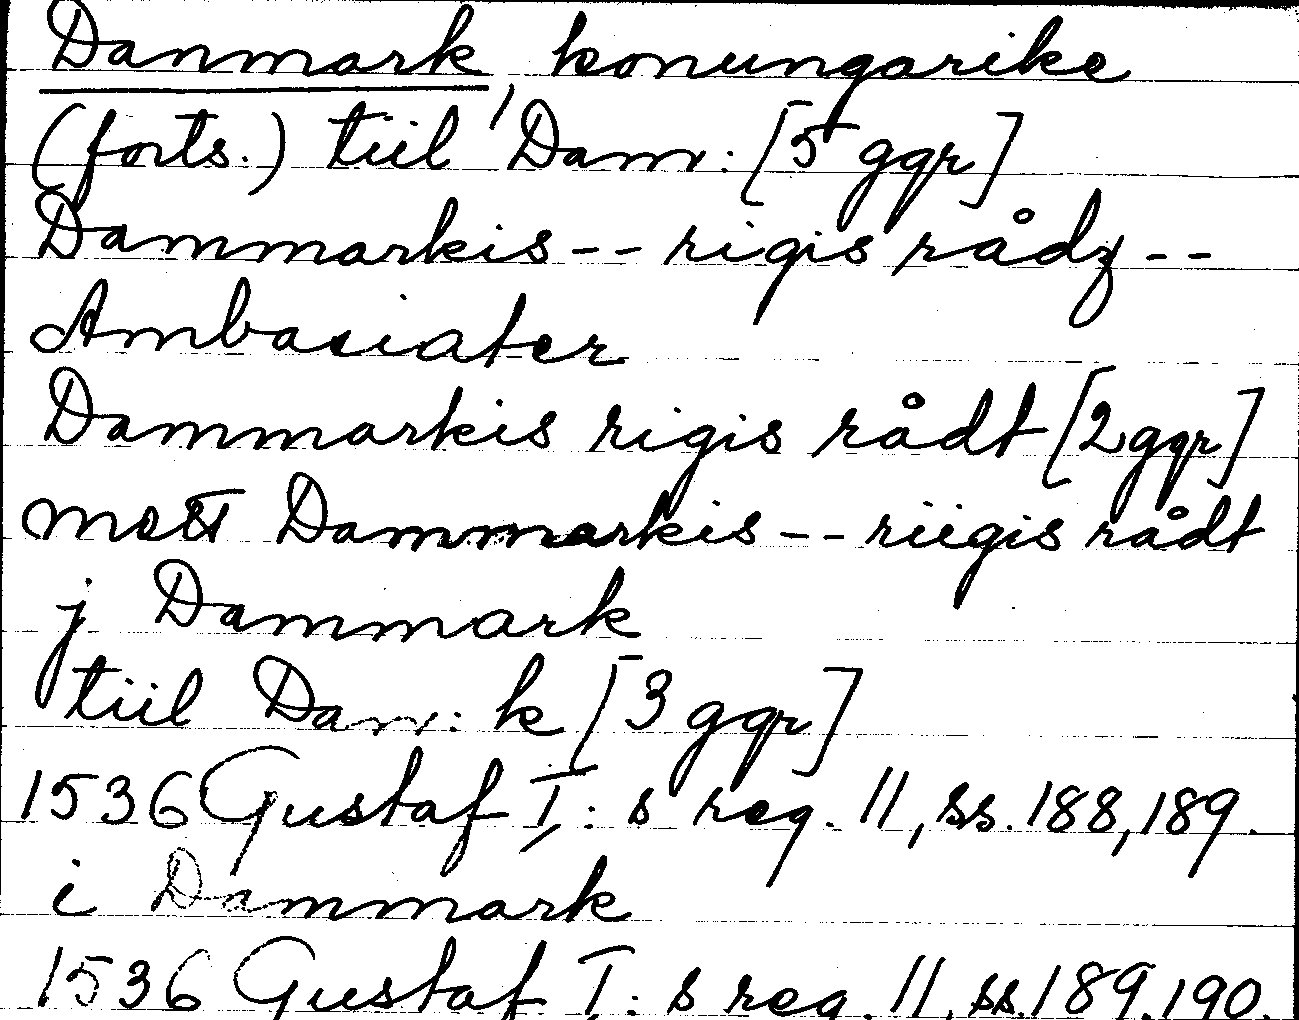 Danmark, konungarike
(forts.) tiil Dam: [5 ggr]
Dammarkis -- rigis rådz --
Ambasiater
Dammarkis rigis rådt [2 ggr]
mett Dammarkis -- riigis rådt
j Dammark
tiil Dam: k [3 ggr]
1536 Gustaf I: s reg. 11, ss. 188, 189.
i Dammark
1536 Gustaf I: s reg. 11, ss. 189, 190.